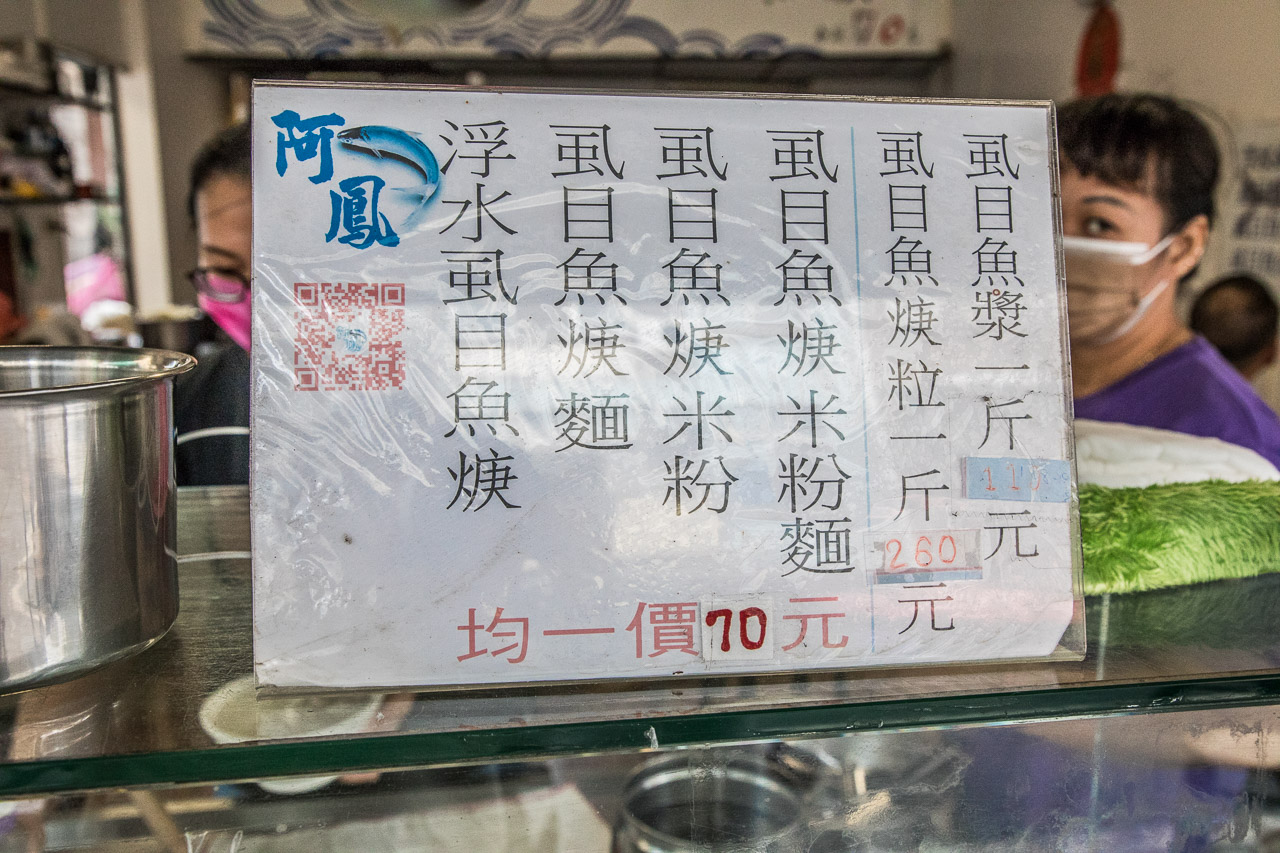 阿鳳
浮水虱目魚焿
虱目魚焿麵
虱目魚焿米粉
虱目魚焿米粉麵
均一價70元
虱目魚焿粒一斤260元
虱目魚漿一斤110元